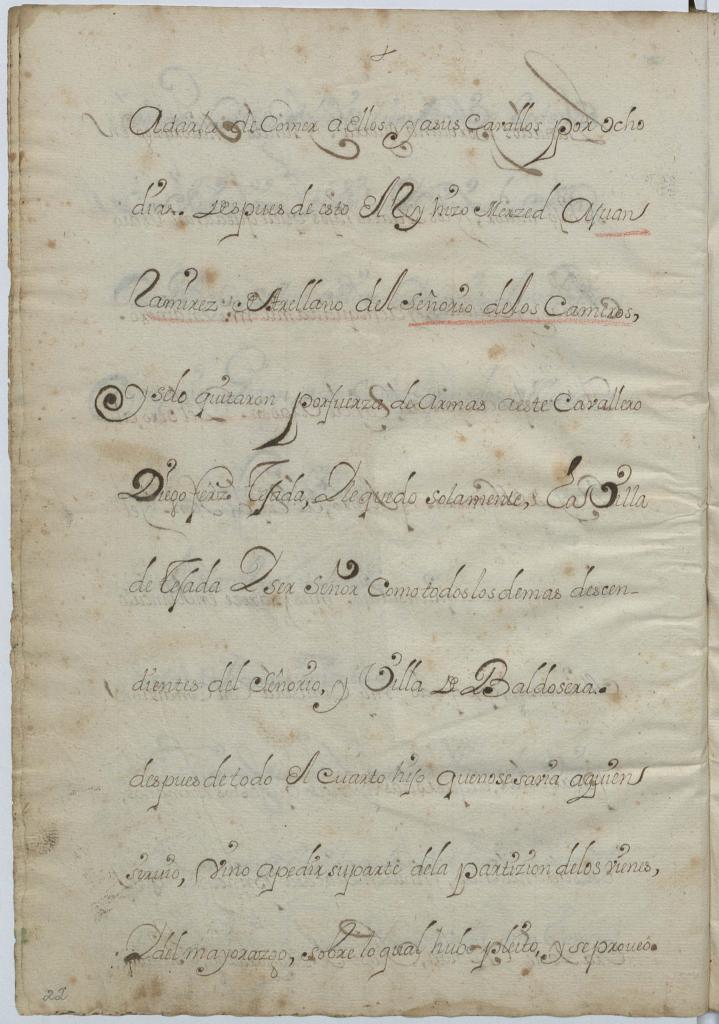 Adarle de Comer a Ellos y asus Cavallos por ocho
dias. Despues de esto El Rey hizo Merzed A Juan
Ramirez Arellano del Señorio delos Cameros,
y selo quitaron por fuerza de Armas a este Cavallero
Diego ferrz Tejada, Dlequedo solamente, La Villa
de Tejada Dser señor Como todos los demas descen-
dientes del señorio, y Villa De Baldosera.
despues de todo El cuarto hijo quenose savia aquien
sirvio, vino apedir suparte dela partizion delos vienes,
Ddel mayorazgo, sobre lo qual hubo pleito, y se proveó
22